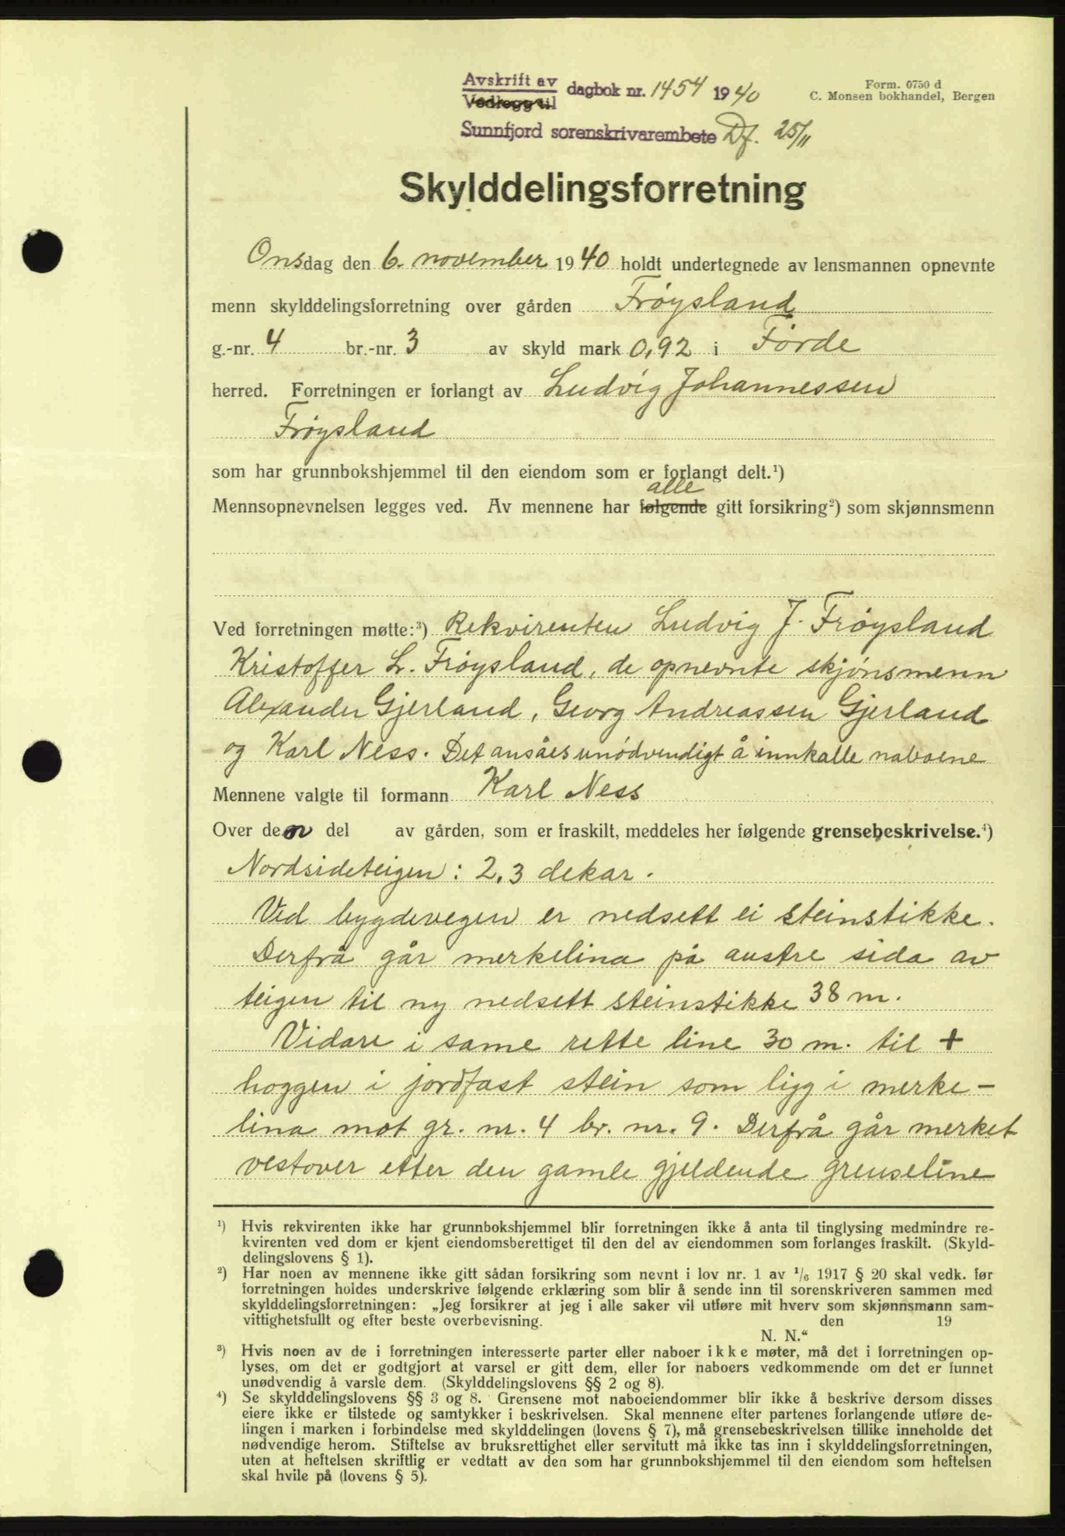 Avskrift av
Vedlegg til
dagbok nr. 1454 1940
Sunnfjord sorenskrivarembete Df. 25/11
Form. 0750 d
C. Monsen bokhandel, Bergen
Skylddelingsforretning
Onsdag den 6. november 1940 holdt undertegnede av lensmannen opnevnte
menn skylddelingsforretning over gården Frøysland
g.-nr. 4 br.-nr. 3 av skyld mark 0,92 i Førde
herred. Forretningen er forlangt av Ludvig Johannessen
Frøysland
som har grunnbokshjemmel til den eiendom som er forlangt delt.¹)
alle
Mennsopnevnelsen legges ved. Av mennene har følgende gitt forsikring²) som skjønnsmenn
Ved forretningen møtte:³) Rekvirenten Ludvig J. Frøysland
Kristoffer L. Frøysland, de opnevnte skjønsmenn
Alexander Gjerland, Georg Andreassen Gjerland
og Karl Ness. Det ansåes unødvendigt å innkalle naboene
Mennene valgte til formann Karl Ness
Over den del av gården, som er fraskilt, meddeles her følgende grensebeskrivelse.⁴)
Nordsideteigen: 2,3 dekar.
Ved bygdevegen er nedsett ei steinstikke.
Derfrå går merkelina på austre sida av
teigen til ny nedsett steinstikke 38 m.
Vidare i same rette line 30 m. til +
hoggen i jordfast stein som ligg i merke-
lina mot gr. nr. 4 br. nr. 9. Derfrå går merket
vestover etter den gamle gjeldende grenseline
¹) Hvis rekvirenten ikke har grunnbokshjemmel blir forretningen ikke å anta til tinglysing medmindre re-
kvirenten ved dom er kjent eiendomsberettiget til den del av eiendommen som forlanges fraskilt. (Skyld-
delingslovens § 1).
²) Har noen av mennene ikke gitt sådan forsikring som nevnt i lov nr. 1 av 1/6 1917 § 20 skal vedk. før
forretningen holdes underskrive følgende erklæring som blir å sende inn til sorenskriveren sammen med
skylddelingsforretningen: „Jeg forsikrer at jeg i alle saker vil utføre mit hverv som skjønnsmann sam-
vittighetsfullt og efter beste overbevisning. den 19
N. N.“
³) Hvis noen av de i forretningen interesserte parter eller naboer ikke møter, må det i forretningen op-
lyses, om det er godtgjort at varsel er gitt dem, eller for naboers vedkommende om det er funnet
unødvendig å varsle dem. (Skylddelingslovens §§ 2 og 8).
⁴) Se skylddelingslovens §§ 3 og 8. Grensene mot naboeiendommer blir ikke å beskrive dersom disses
eiere ikke er tilstede og samtykker i beskrivelsen. Skal mennene efter partenes forlangende utføre de-
lingen i marken i forbindelse med skylddelingen (lovens § 7), må grensebeskrivelsen tillike inneholde det
nødvendige herom. Stiftelse av bruksrettighet eller servitutt må ikke tas inn i skylddelingsforretningen,
uten at heftelsen skriftlig er vedtatt av den som har grunnbokshjemmel til den eiendom som heftelsen
skal hvile på (lovens § 5).